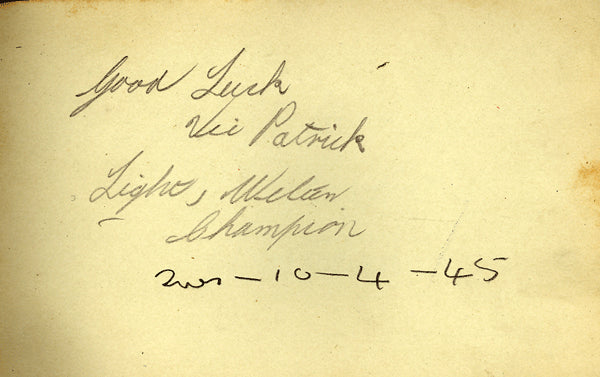 Good Luck
Vic Patrick
Light, Welter
Champion
-10-4-45